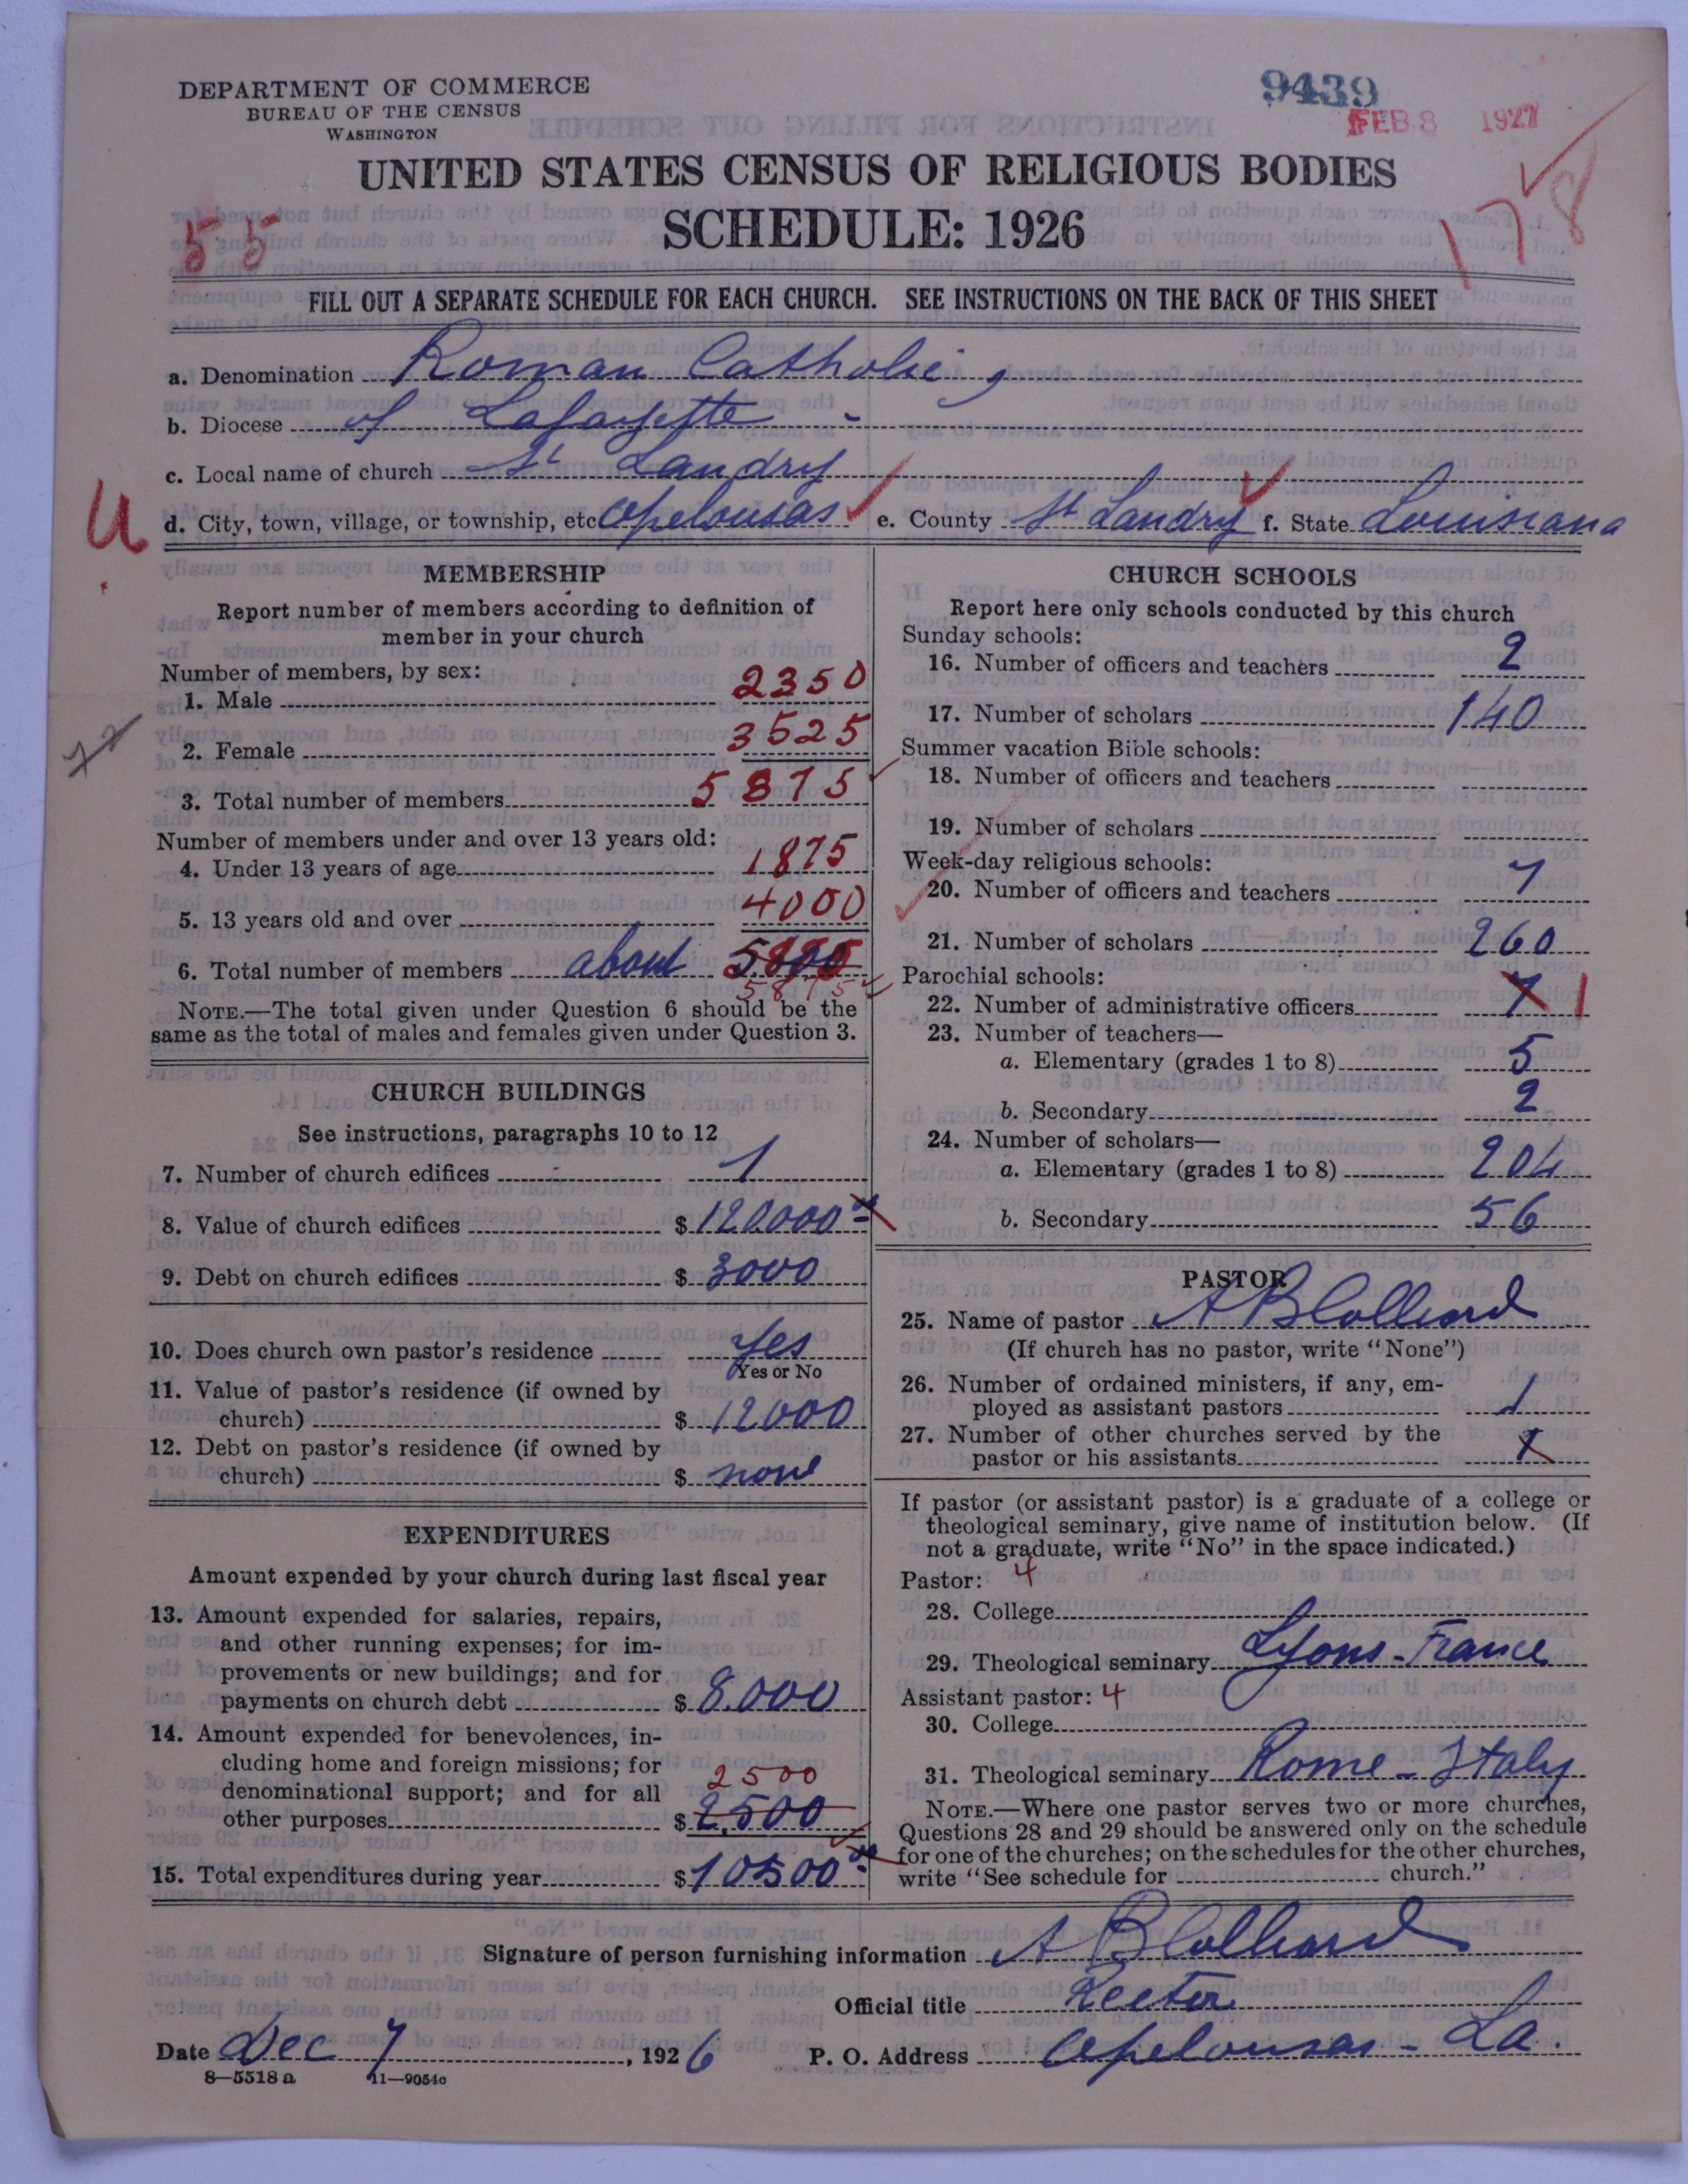 DEPARTMENT OF COMMERCE
BUREAU OF THE CENSUS
WASHINGTON
9439
FEB 8 1927
UNITED STATES CENSUS OF RELIGIOUS BODIES
SCHEDULE: 1926
55
178
FILL OUT A SEPARATE SCHEDULE FOR EACH CHURCH. SEE INSTRUCTIONS ON THE BACK OF THIS SHEET
a. Denomination Roman Catholic,
b. Diocese of Lafayette -
c. Local name of church St Landry
U
d. City, town, village, or township, etc Opelousas e. County St Landry f. State Louisiana
MEMBERSHIP
Report number of members according to definition of
member in your church
Number of members, by sex:
1. Male 2350
2. Female 3525
3. Total number of members 5875
Number of members under and over 13 years old:
4. Under 13 years of age 1875
5. 13 years old and over 4000
6. Total number of members about
5875
NOTE.—The total given under Question 6 should be the
same as the total of males and females given under Question 3.
CHURCH BUILDINGS
See instructions, paragraphs 10 to 12
7. Number of church edifices 1
8. Value of church edifices $ 120.000
9. Debt on church edifices $ 3000
10. Does church own pastor's residence Yes
Yes or No
11. Value of pastor's residence (if owned by
church) $ 12000
12. Debt on pastor's residence (if owned by
church) $ none
EXPENDITURES
Amount expended by your church during last fiscal year
13. Amount expended for salaries, repairs,
and other running expenses; for im-
provements or new buildings; and for
payments on church debt $ 8.000
14. Amount expended for benevolences, in-
cluding home and foreign missions; for
denominational support; and for all 2500
other purposes $ 2.500
15. Total expenditures during year $ 10500
CHURCH SCHOOLS
Report here only schools conducted by this church
Sunday schools:
16. Number of officers and teachers 2
17. Number of scholars 140
Summer vacation Bible schools:
18. Number of officers and teachers
19. Number of scholars
Week-day religious schools:
20. Number of officers and teachers 7
21. Number of scholars 260
Parochial schools:
22. Number of administrative officers 7 1
23. Number of teachers—
a. Elementary (grades 1 to 8) 5
b. Secondary 2
24. Number of scholars—
a. Elementary (grades 1 to 8) 204
b. Secondary 56
PASTOR
25. Name of pastor A B Colliard
(If church has no pastor, write "None")
26. Number of ordained ministers, if any, em-
ployed as assistant pastors 1
27. Number of other churches served by the
pastor or his assistants
If pastor (or assistant pastor) is a graduate of a college or
theological seminary, give name of institution below. (If
not a graduate, write "No" in the space indicated.)
Pastor: 4
28. College
29. Theological seminary Lyons - France
Assistant pastor: 4
30. College
31. Theological seminary Rome - Italy
NOTE.—Where one pastor serves two or more churches,
Questions 28 and 29 should be answered only on the schedule
for one of the churches; on the schedules for the other churches,
write "See schedule for church."
Signature of person furnishing information A B Colliard
Official title Rector
Date Dec 7, 1926 P. O. Address Opelousas - La.
8—5518 a 11—9054c